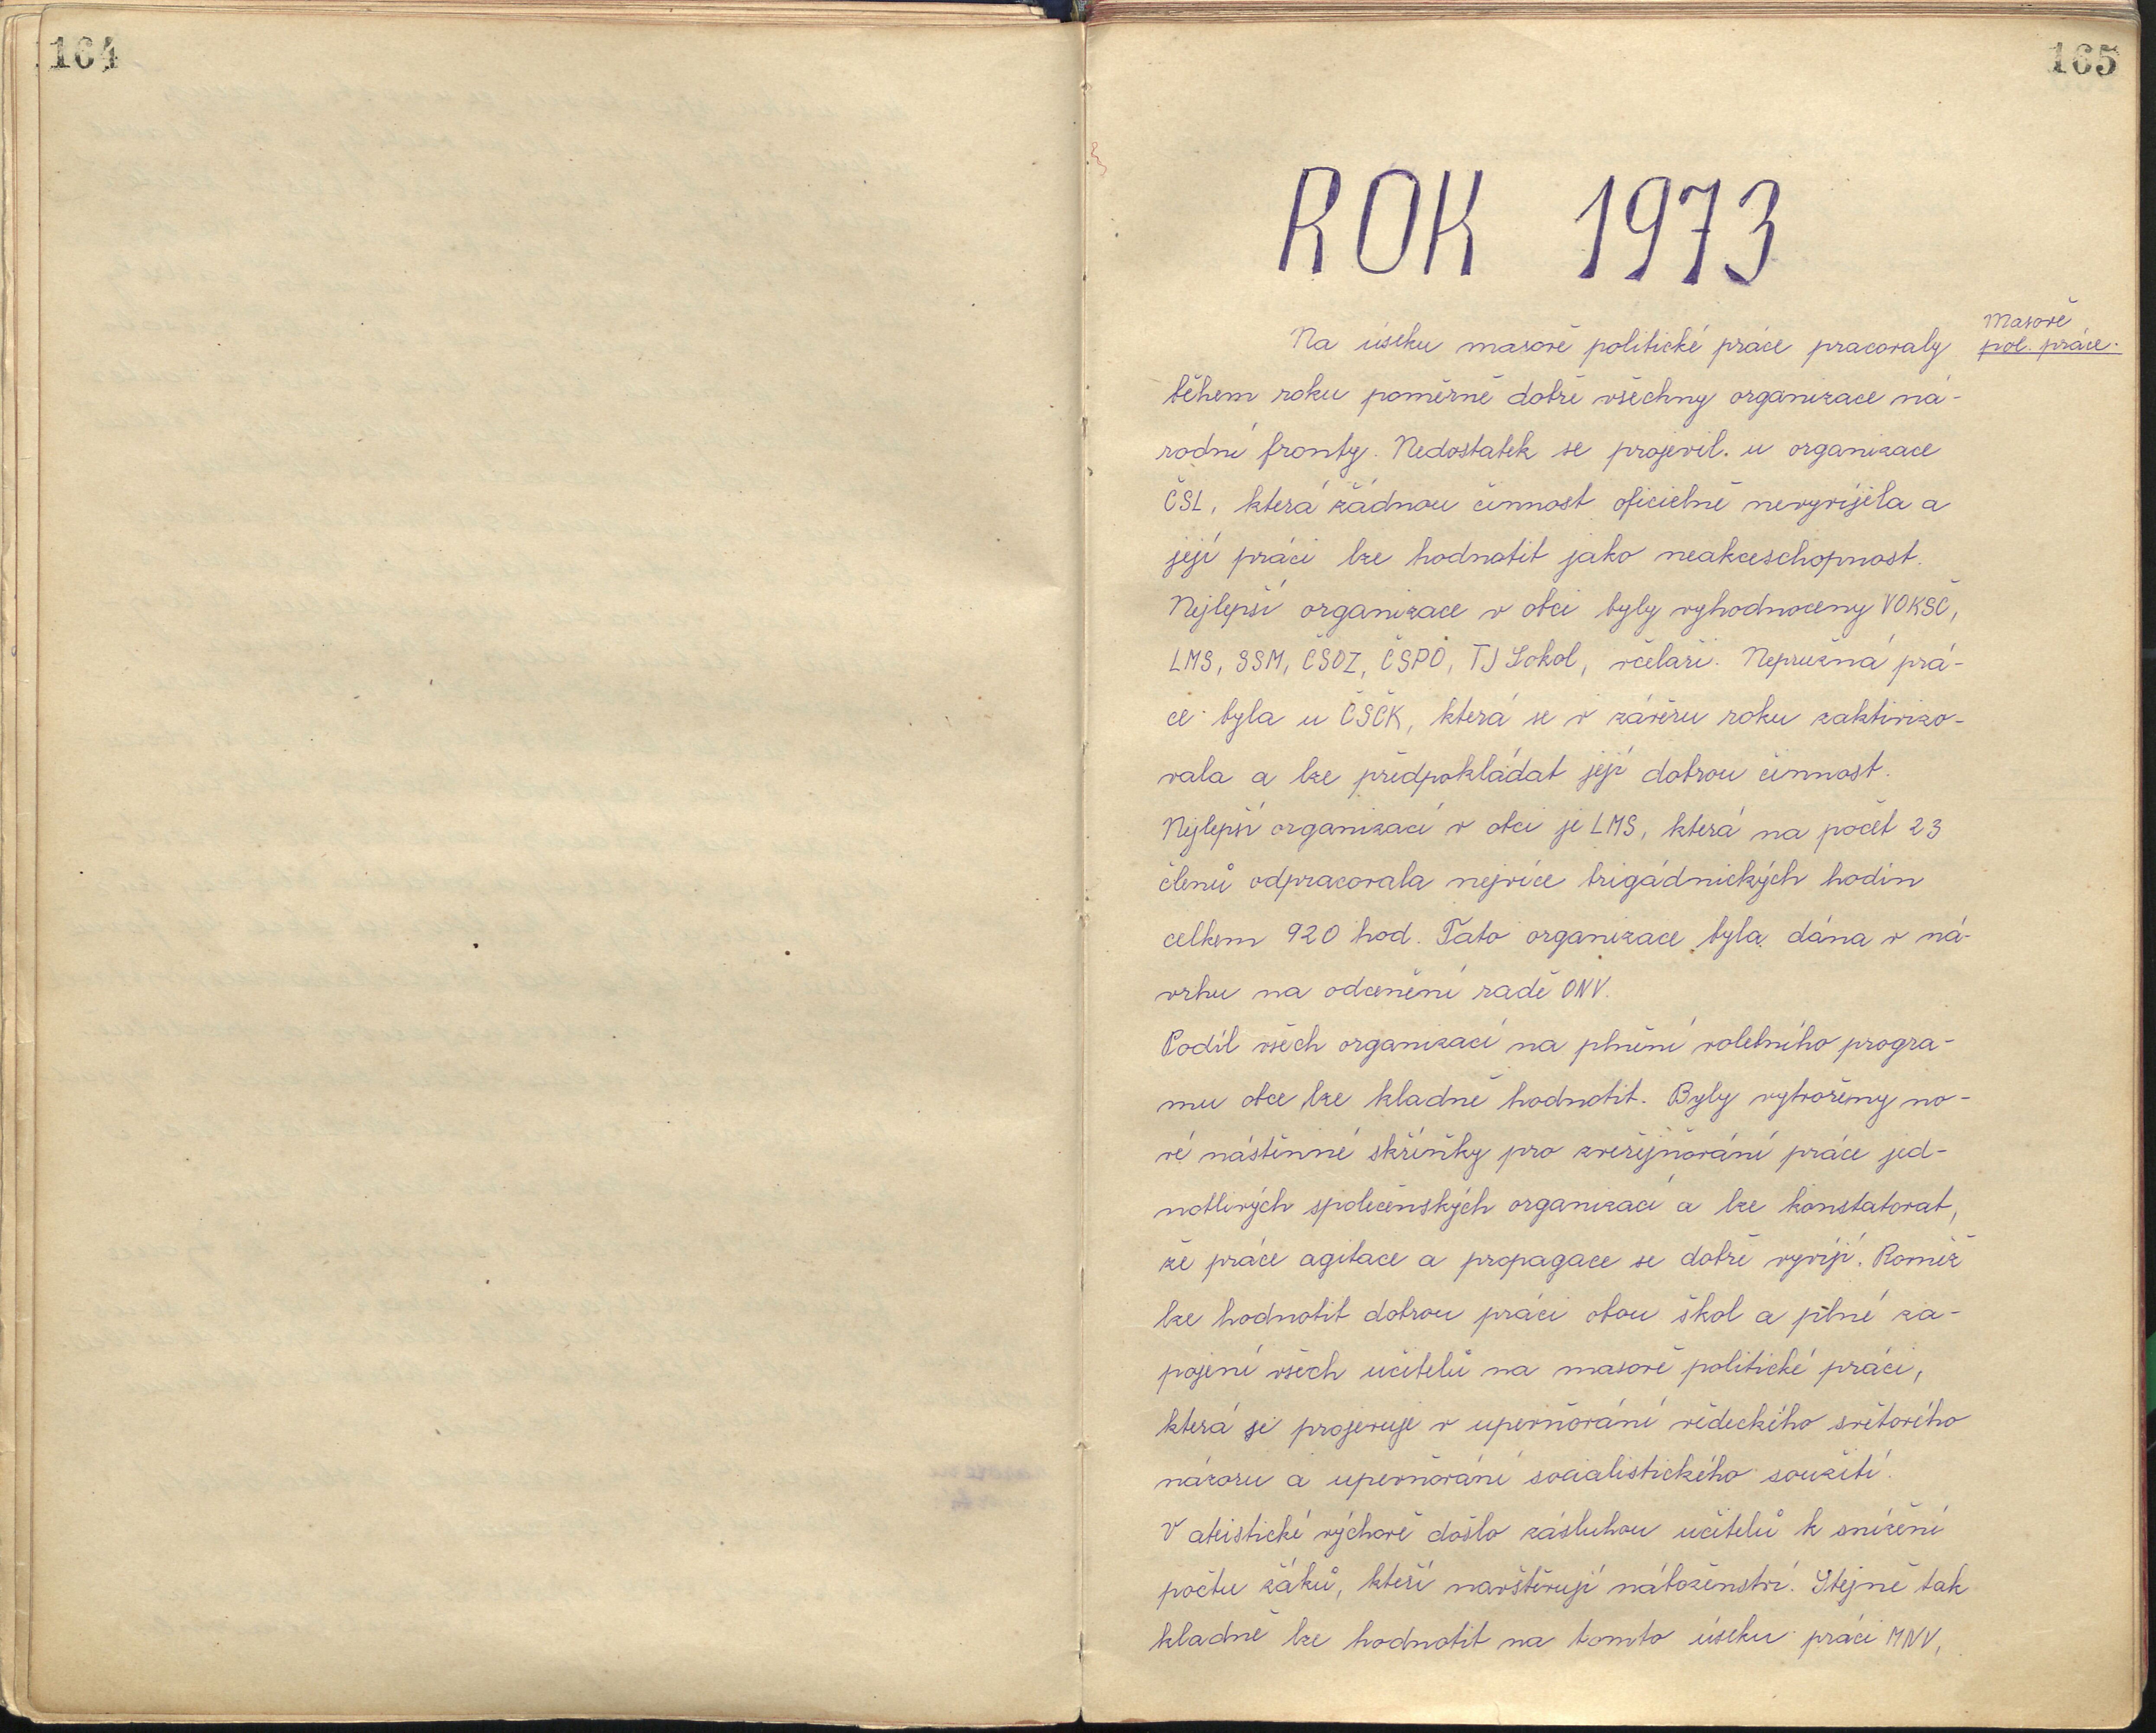 164
165
ROK 1973
Masově
pol. práce.
Na úseku masově politické práce pracovaly
během roku poměrně dobře všechny organizace ná-
rodní fronty. Nedostatek se projevil u organizace
ČSL, která žádnou činnost oficielně nevyvíjela a
její práci lze hodnotit jako neakceschopnost.
Nejlepší organizace v obci byly vyhodnoceny VOKSČ,
LMS, SSM, ČSDŽ, ČSPO, TJ Sokol, včelaři. Nepružná prá-
ce byla u ČSČK, která se v závěru roku zaktivizo-
vala a lze předpokládat její dobrou činnost.
Nejlepší organizací v obci je LMS, která na počet 23
členů odpracovala nejvíce brigádnických hodin
celkem 920 hod. Tato organizace byla dána v ná-
vrhu na odcenění radě ONV.
Podíl všech organizací na plnění volebního progra-
mu obce lze kladně hodnotit. Byly vytvořeny no-
vé nástěnné skříňky pro zveřejňování práce jed-
notlivých společenských organizací a lze konstatovat,
že práce agitace a propagace se dobře vyvíjí. Rovněž
lze hodnotit dobrou práci obou škol a plné za-
pojení všech učitelů na masově politické práci,
která se projevuje v upevňování vědeckého světového
názoru a upevňování socialistického soužití.
V ateistické výchově došlo zásluhou učitelů k snížení
počtu žáků, kteří navštěvují náboženství. Stejně tak
kladně lze hodnotit na tomto úseku práci MNV,